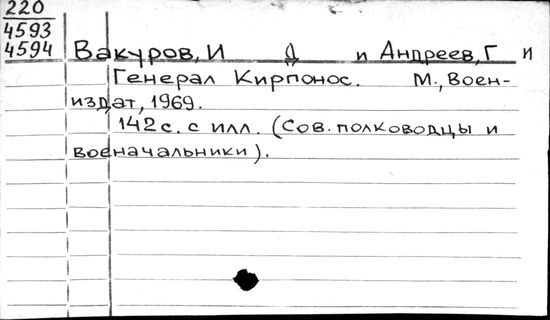 220
4593
4594
Вакуров, И Д и Андреев, Г И
Генерал Кирпонос. М., Воен-
издат, 1969.
142 с. с илл. (Сов. полководцы и
военачальники).